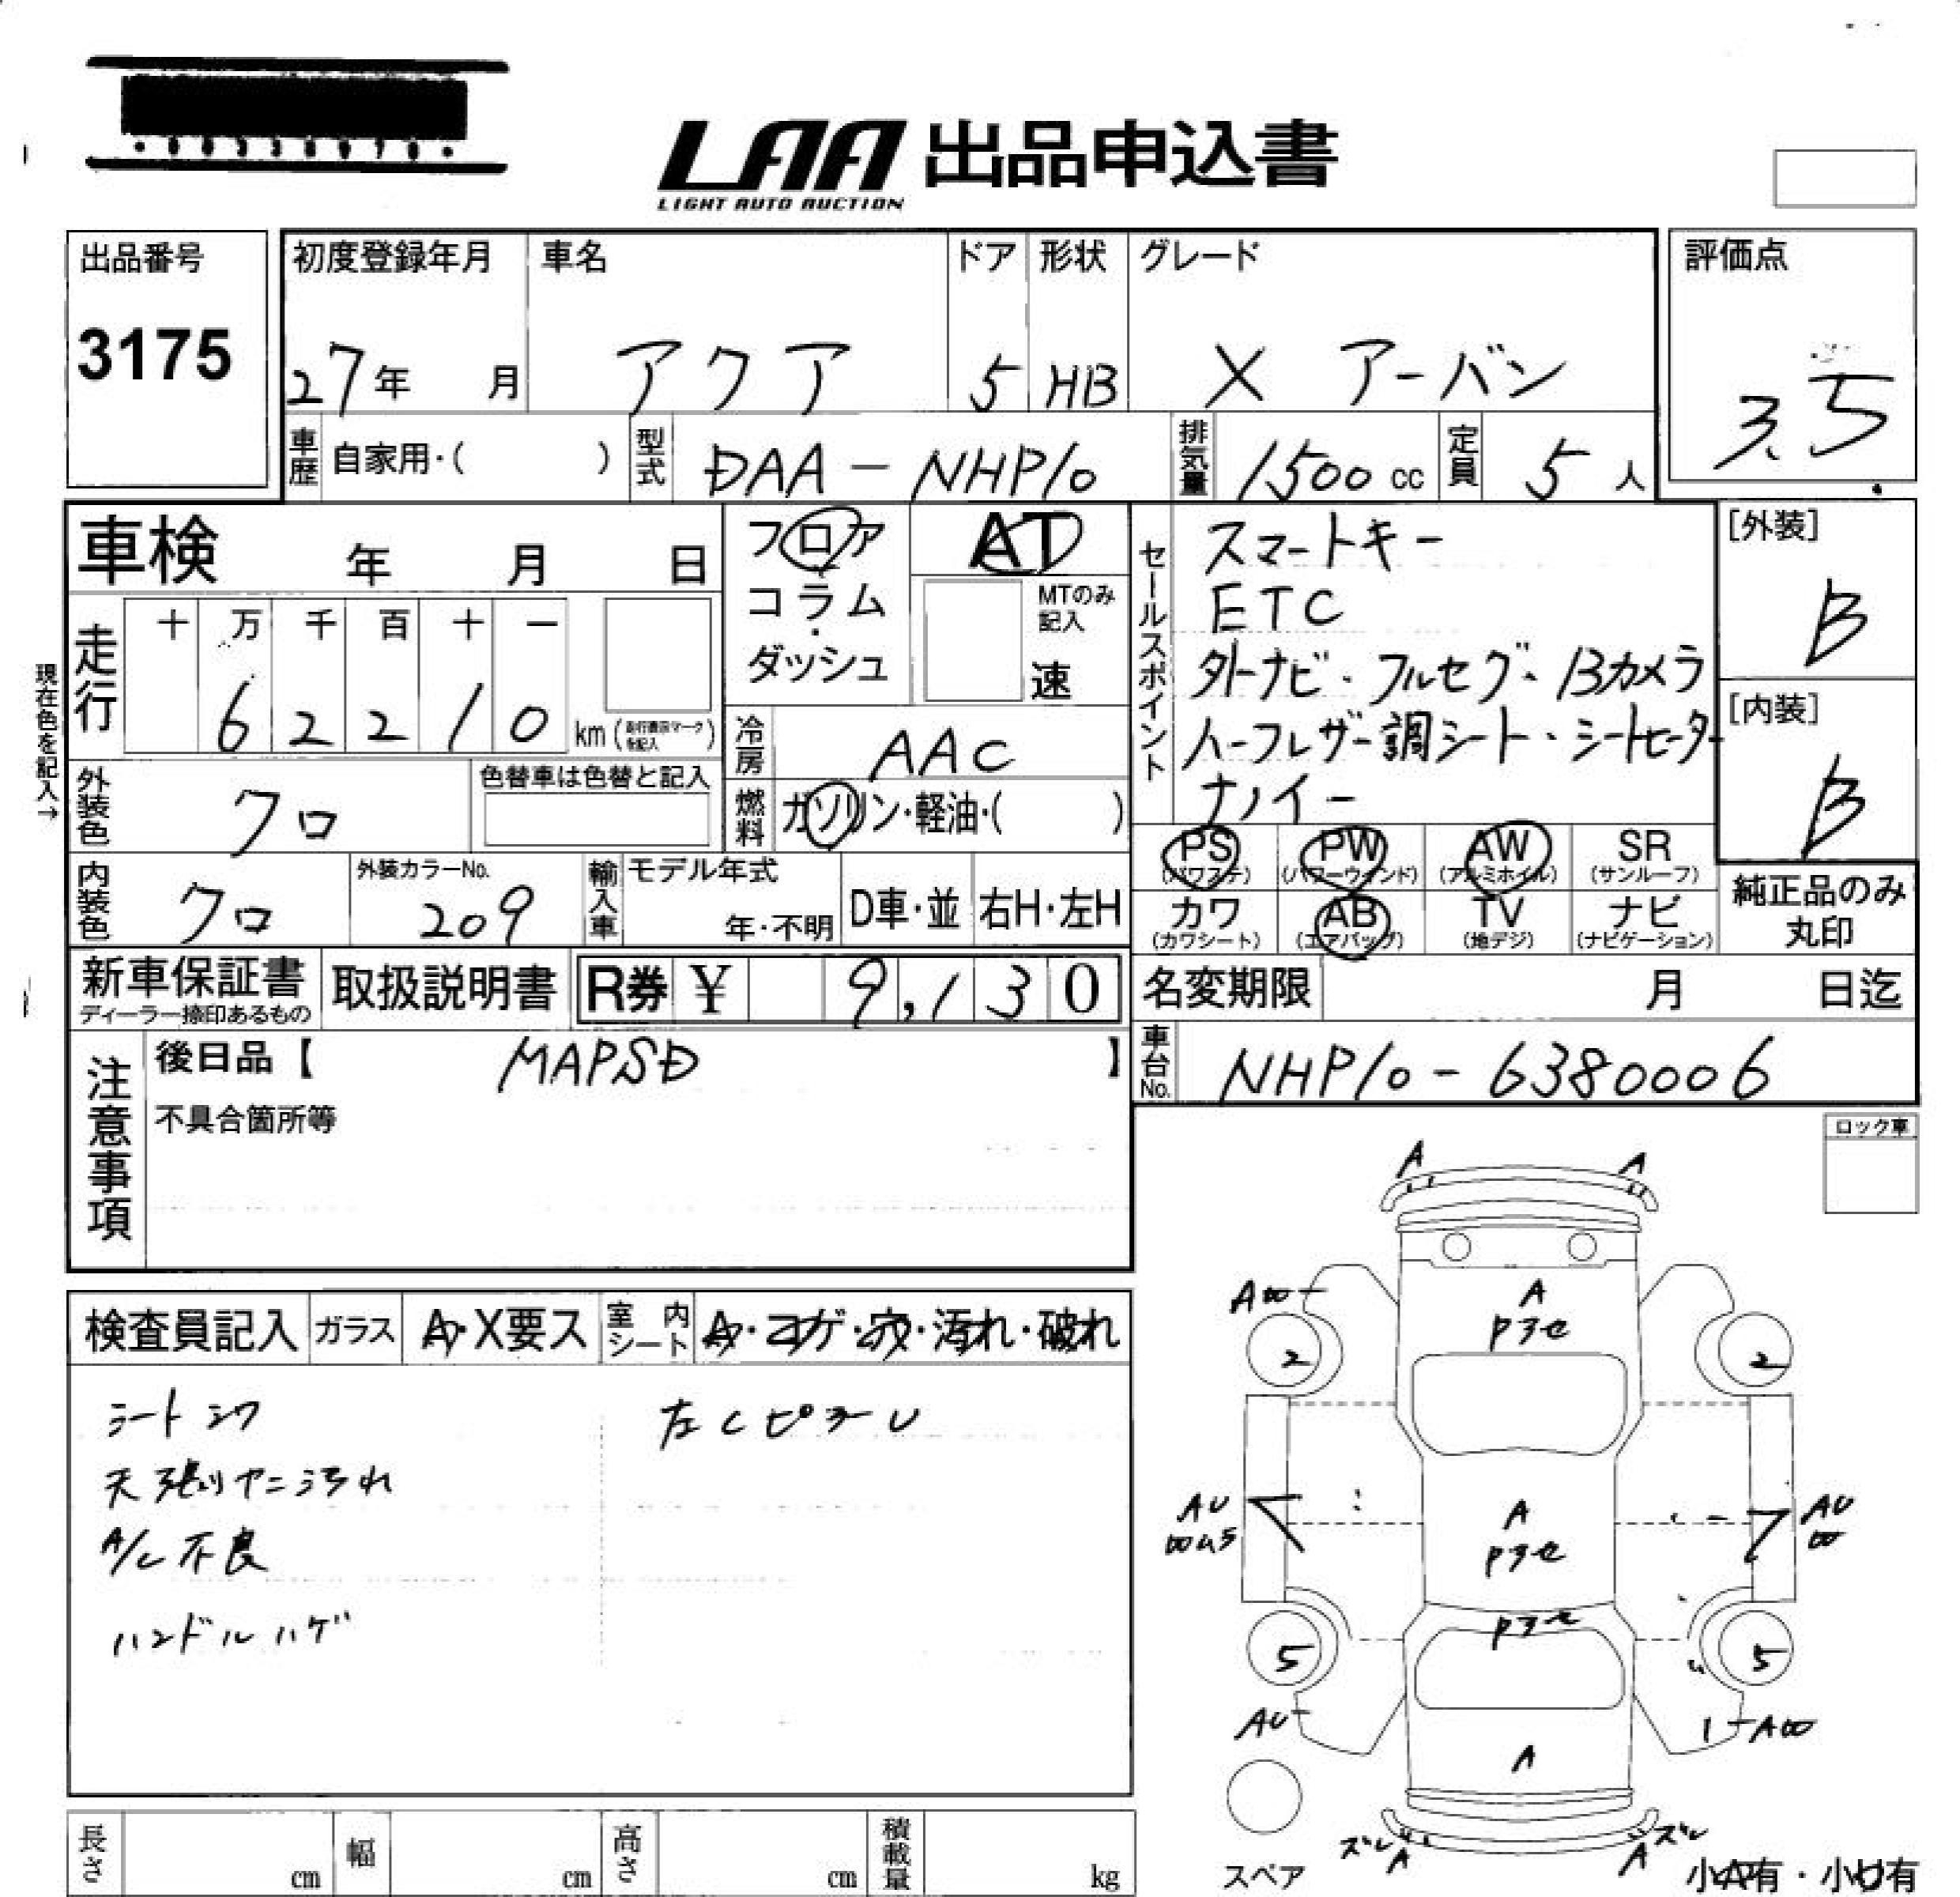 LAA 出品申込書
LIGHT AUTO AUCTION
出品番号
3175
初度登録年月
27年 月
車名
アクア
ドア
5
形状
HB
グレード
X アーバン
評価点
3.5
車歴 自家用・( )
型式 DAA-NHP10
排気量 1500cc
定員 5人
車検 年 月 日
フロア
コラム
・
ダッシュ
AT
MTのみ
記入
速
走行
十 万 千 百 十 一
6 2 2 1 0 km
現在色を記入→
冷房 AAC
燃料 ガソリン・軽油・( )
外装色 クロ
色替車は色替と記入
内装色 クロ
外装カラーNo.
209
輸入車
モデル年式
年・不明
D車・並
右H・左H
セールスポイント
スマートキー
ETC
外ナビ・フルセグ・Bカメラ
ハーフレザー調シート・シートヒーター
ナノイー
[外装]
B
[内装]
B
PS
(パワステ)
PW
(パワーウインド)
AW
(アルミホイル)
SR
(サンルーフ)
カワ
(カワシート)
AB
(エアバッグ)
TV
(地デジ)
ナビ
(ナビゲーション)
純正品のみ
丸印
新車保証書
ディーラー捺印あるもの
取扱説明書
R券 ¥ 9,130
名変期限 月 日迄
車台No. NHP10-6380006
注意事項
後日品【 MAPSD 】
不具合箇所等
ロック車
検査員記入
ガラス
A・X要ス
室内シート
A・コゲ・穴・汚れ・破れ
シートシワ
天張リヤニ汚れ
A/C不良
ハンドルハゲ
左CピラーU
A A
A
2 2
A
AU
AU
A
5 5
AU
A
ズレ
A
ズレ
A
スペア
小A有・小U有
長さ cm
幅 cm
高さ cm
積載量 kg